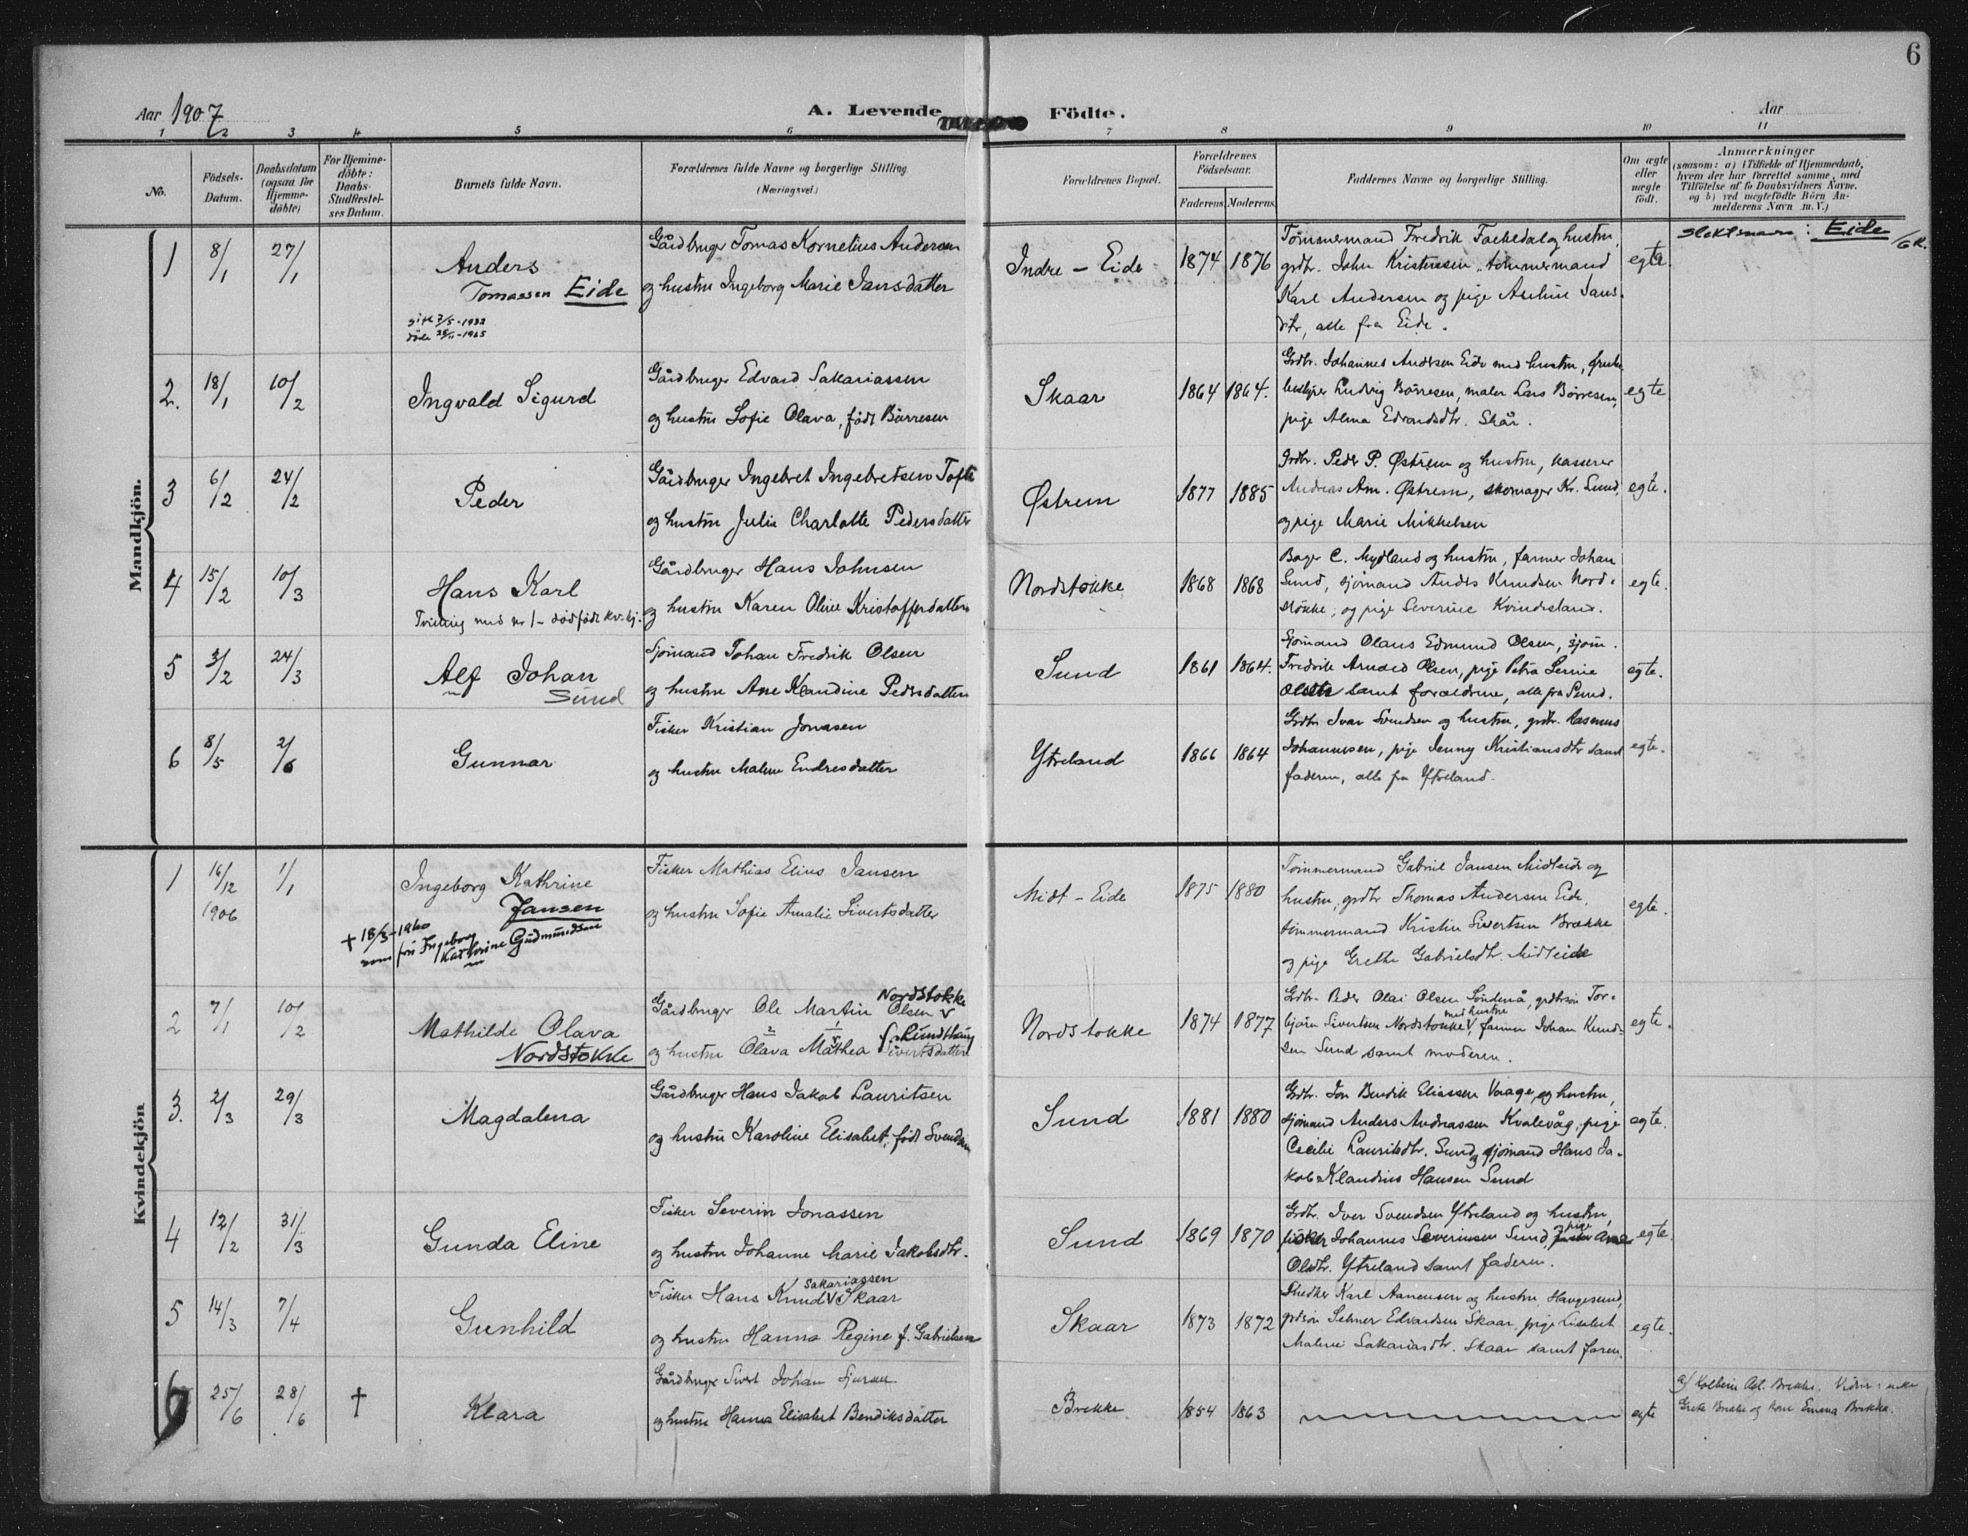 6
Aar 1907
A. Levende Födte.
Aar
1 2 3 4 5 6 7 8 9 10 11
No.
Födsels-
Datum.
Daabsdatum
(ogsaa for
Hjemme-
döbte)
For Hjemme-
döbte:
Daabs-
Stadfæstel-
ses Datum.
Barnets fulde Navn.
Forældrenes fulde Navne og borgerlige Stilling
(Næringsvei.)
Forældrenes Bopæl.
Forældrenes
Födselsaar.
Faderens. Moderens.
Faddernes Navne og borgerlige Stilling.
Om ægte
eller
uægte
födt.
Anmærkninger
(saasom: a) i Tilfælde af Hjemmedaab,
hvem der har forrettet samme, med
Tilföielse af to Daabsvidners Navne,
og b) ved uægtefödte Börn An-
melderens Navn m. V.)
Mandkjön.
1 8/1 27/1
Anders
Tomassen Eide
gift 7/5-1932
döde
-1965
Gårdbruger Tomas Kornelius Andersen
og hustru Ingeborg Marie Jansdatter
Indre - Eide 1874 1876
Tømmermand Fredrik Faekedal og hustru,
grdbr. John Kristensen, tømmermand
Karl Andersen og pige Aseline Jans-
dtr, alle fra Eide.
egte
slektsnavn: Eide
2. 18/1 10/2
Ingvald Sigurd
Gårdbruger Edvard Sakariassen
og hustru Sofie Olava, født Börresen
Skaar 1864 1864.
Grdbr. Johannes Andersen Eide med hustru,
Ludvig Børresen, maler Lars Børresen,
pige Alma Edvardsdtr. Skår.
egte
3 6/2 24/2
Peder
Gårdbruger Ingebret Ingebretsen Tofte
og hustru Julie Charlotte Pedersdatter
Østrem 1877 1885
Grdbr. Peder P. Østrem og hustru, kasserer
Andreas Am. Østrem, skomager Kr. Sund,
og pige Marie Mikkelsen
egte.
4 15/2 10/3
Hans Karl
Tvilling med nr 1 - dödfödt kv. kj.
Gårdbruger Hans Johnsen
og hustru Karen Oline Kristoffersdatter
Nordstokke 1868 1868
Bager C. Mydland og hustru, farmer Johan
Sund, sjømand Anders Knudsen Nord-
stokke, og pige Severine Kvindesland.
egte.
5 3/2 24/3
Alf Johan
Sund
Sjømand Johan Fredrik Olsen
og hustru Ane Klandine Pedersdatter
Sund 1861 1864.
Sjømand Olaus Edmund Olsen, sjøm.
Fredrik Arnold Olsen, pige Petra Serine
samt forældrene, alle fra Sund.
egte.
6 8/5 2/6
Gunnar
Fisker Kristian Jonasen
og hustru Malene Endresdatter
Ytreland 1866 1864
Grdbr Ivar Svendsen og hustru, grdbr. Rasmus
Johannesen, pige Jenny Kristiansdtr samt
faderen, alle fra Ytreland.
egte.
Kvindekjön
1 16/12 1906 1/1
Ingeborg Kathrine
Jansen
+ 18/3-1960
som fru Ingeborg
Katherine Gudmundsen
Fisker Mathias Elius Jansen
og hustru Sofie Amalie Sivertsdatter
Midt - Eide 1875 1880
Tømmermand Gabriel Jansen Midteide og
hustru, grdbr Thomas Andersen Eide,
tømmermand Kristin Sivertsen Brække
og pige Grethe Gabrielsdtr. Midteide
egte.
2 7/1 10/2
Mathilde Olava
Nordstokke
Nordstokke
Gårdbruger Ole Martin Olsen
og hustru Olava Mathea Sivertsdatter
Nordstokke 1874 1877
Grdbr. Peder Olai Olsen Söndenå, grdbrsøn Tor-
med hustru
bjørn Sivertsen Nordstokke, farmer Johan Knud-
sen Sund samt moderen.
egte.
3. 2/3 29/3
Magdalena
Gårdbruger Hans Jakob Lauritsen
og hustru Karoline Elisabet, født Svendsen
Sund 1881 1880
Grdbr. Jon Bendik Eliassen Vaage, og hustru,
sjømand Anders Andreassen Kvalevåg, pige
Cecilie Lauritsdtr. Sund og sjømand Hans Ja-
kob Klandius Hansen Sund
egte.
4 12/2 31/3
Gunda Eline
Fisker Severin Jonassen
og hustru Johanne Marie Jakobsdtr.
Sund 1869 1870
Grdbr. Iver Svendsen Ytreland og hustru,
fisker Johannes Severinsen Sund, pige
Olsdtr. Ytreland samt faderen.
egte.
5 14/3 7/4
Gunhild
Sakariassen
Fisker Hans Knud Skaar
og hustru Hanna Regine f. Gabrielsen
Skaar 1873 1872
Karl Aanensen og hustru Haugesund,
grdsøn Selmer Edvardsen Skaar, pige Lisabet
Malene Sakariasdtr. Skaar samt faren.
egte.
6 25/6 28/6 †
Klara
Gårdbruger Sivert Johan
og hustru Hanna Elisabet Bendiksdatter
Brekke 1854 1863
egte
a) Kolbein
Brekke. Vidner: enke
Grete Brekke og kone Emma Brekke.